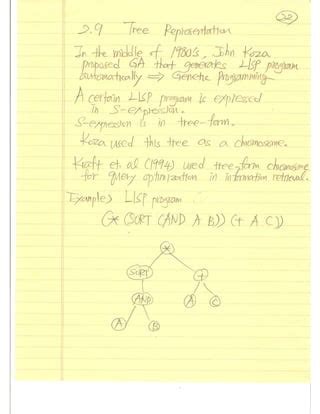 22
2.9 Tree Representation
In the middle of 1980's, John Koza
proposed GA that generates LISP program
automatically ⇒ Genetic Programming
A certain LISP program is expressed
in S-expression.
S-expression is in tree-form.
Koza used this tree as a chromosome.
Kraft et. al (1994) used tree-form chromosome
for query optimization in information retrieval.
Example) LISP program
(* (SQRT (AND A B)) (+ A C))
*
SQRT +
AND A C
A B